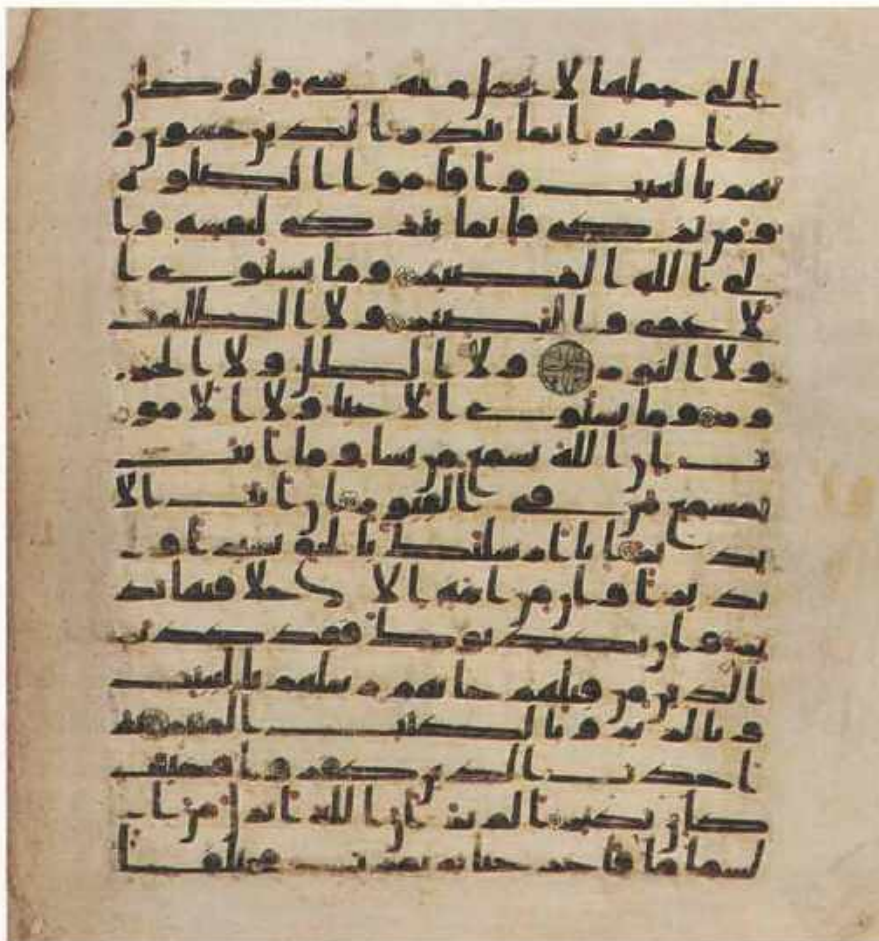 الى حملها لا يحمل منه شى ولو كان
ذا قربى انما تنذر الذين يخشون ر
بهم بالغيب واقاموا الصلوة
ومن تزكى فانما يتزكى لنفسه وا
لى الله المصير وما يستوى ا
لاعمى والبصير ولا الظلمت
ولا النور ولا الظل ولا الحر
ور وما يستوى الاحيا ولا الامو
ت ان الله يسمع من يشا وما انت
بمسمع من فى القبور ان انت الا
نذير انا ارسلنك بالحق بشيرا و
نذيرا وان من امة الا خلا فيها نذ
ير وان يكذبوك فقد كذب
الذين من قبلهم جاتهم رسلهم بالبينت
وبالزبر وبالكتب المنير ثم
اخذت الذين كفروا فكيف
كان نكير الم تر ان الله انزل من ا
لسما ما فاخرجنا به ثمرت مختلفا